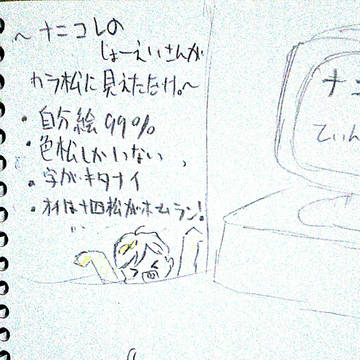 ～ナニコレの
じょーえいさんが
カラ松に見えただけ。～
・自分絵99%
・色松しかいない
・字がキタナイ
・オイは十四松がホームラン!
ナニ
てぃん